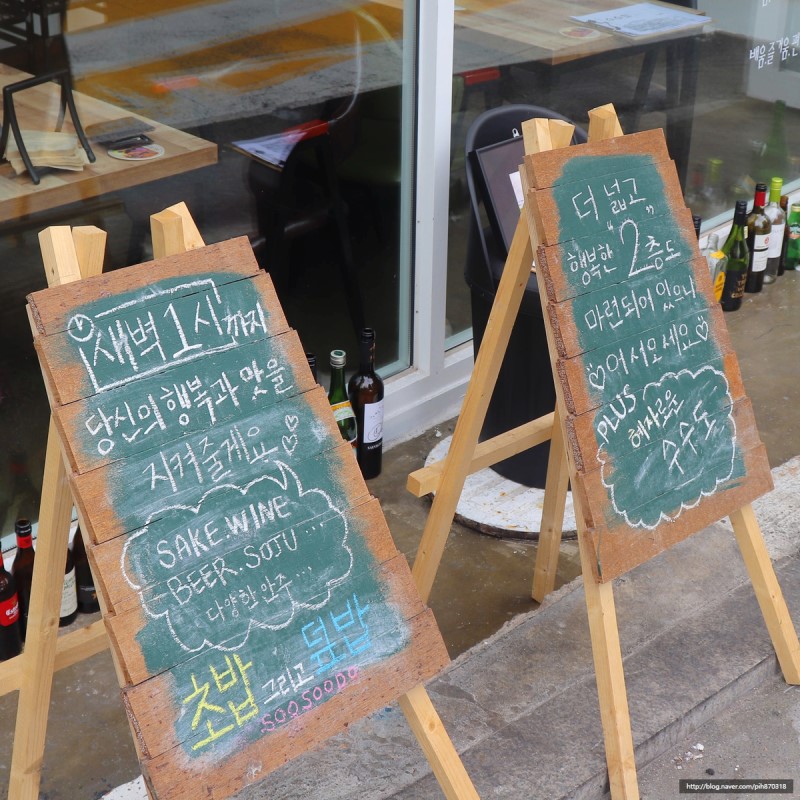 새벽 1시 까지
당신의 행복과 맛을
지켜줄게요 ♡♡
SAKE.WINE
BEER.SOJU ...
다양한 안주...
초밥 그리고 덮밥
SOOSOODO
더 넓고,,
행복한 "2층도
마련되어 있으니
♡어서오세요♡
PLUS
혜자로운
수수도
http://blog.naver.com/pih870318